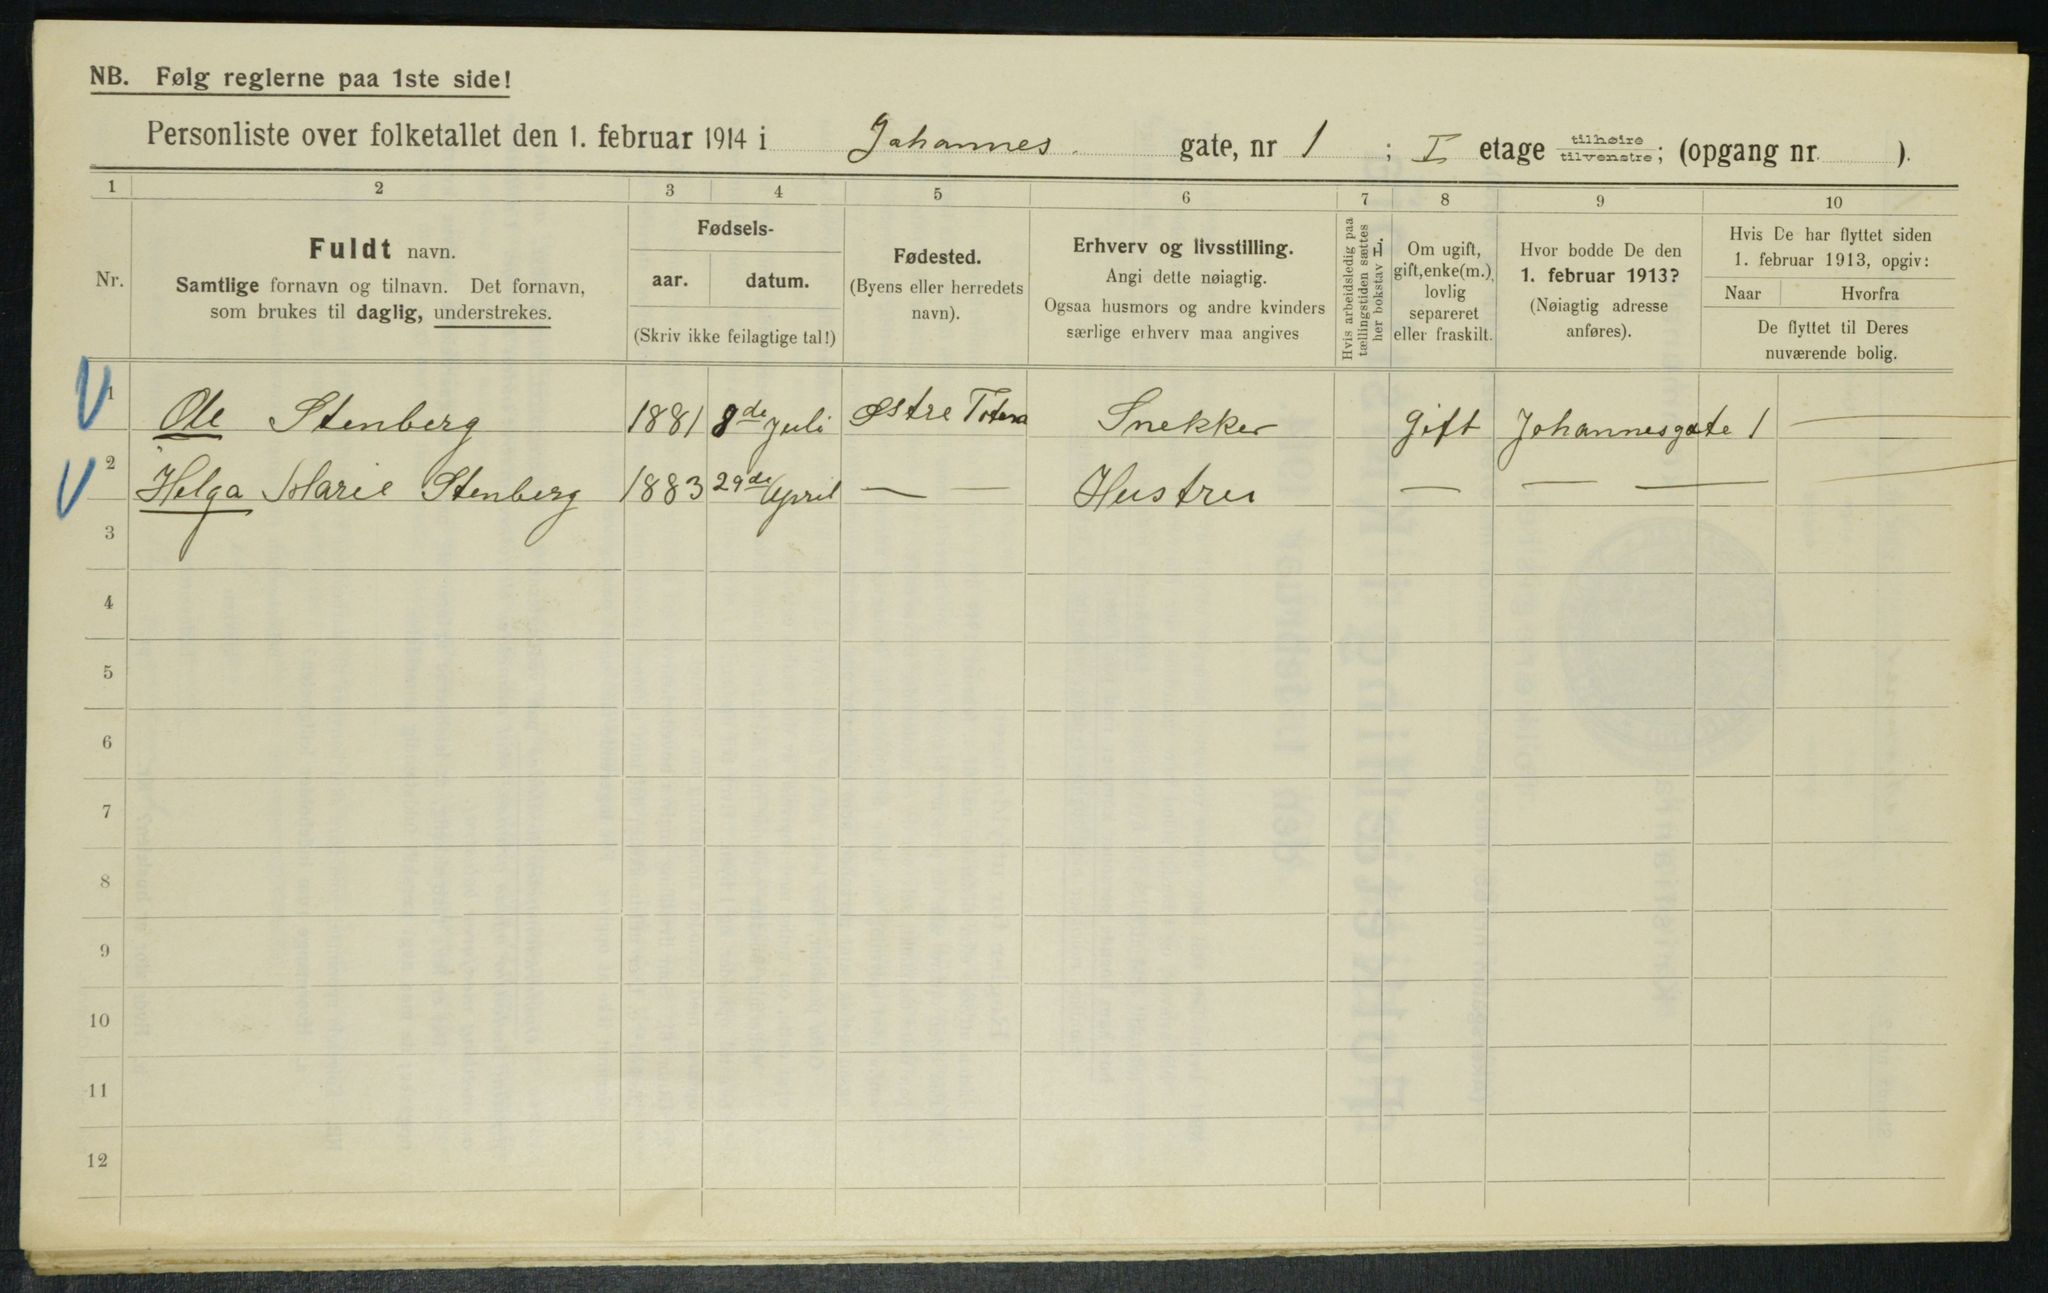 NB. Følg reglerne paa 1ste side!
Personliste over folketallet den 1. februar 1914 i Johannes gate, nr 1 ; I etage tilhøire/tilvenstre; (opgang nr. ).
1 2 3 4 5 6 7 8 9 10
Nr.
Fuldt navn.
Samtlige fornavn og tilnavn. Det fornavn,
som brukes til daglig, understrekes.
Fødsels-
aar. datum.
(Skriv ikke feilagtige tal!)
Fødested.
(Byens eller herredets
navn).
Erhverv og livsstilling.
Angi dette nøiagtig.
Ogsaa husmors og andre kvinders
særlige erhverv maa angives
Hvis arbeidsledig paa
tællingstiden sættes
her bokstav L.
Om ugift,
gift, enke(m.),
lovlig
separeret
eller fraskilt.
Hvor bodde De den
1. februar 1913?
(Nøiagtig adresse
anføres).
Hvis De har flyttet siden
1. februar 1913, opgiv:
Naar Hvorfra
De flyttet til Deres
nuværende bolig.
1 Ole Stenberg 1881 8de Juli Østre Toten Snekker gift Johannesgate 1 —
2 Helga Marie Stenberg 1883 29de April — — Hustru — — —
3
4
5
6
7
8
9
10
11
12